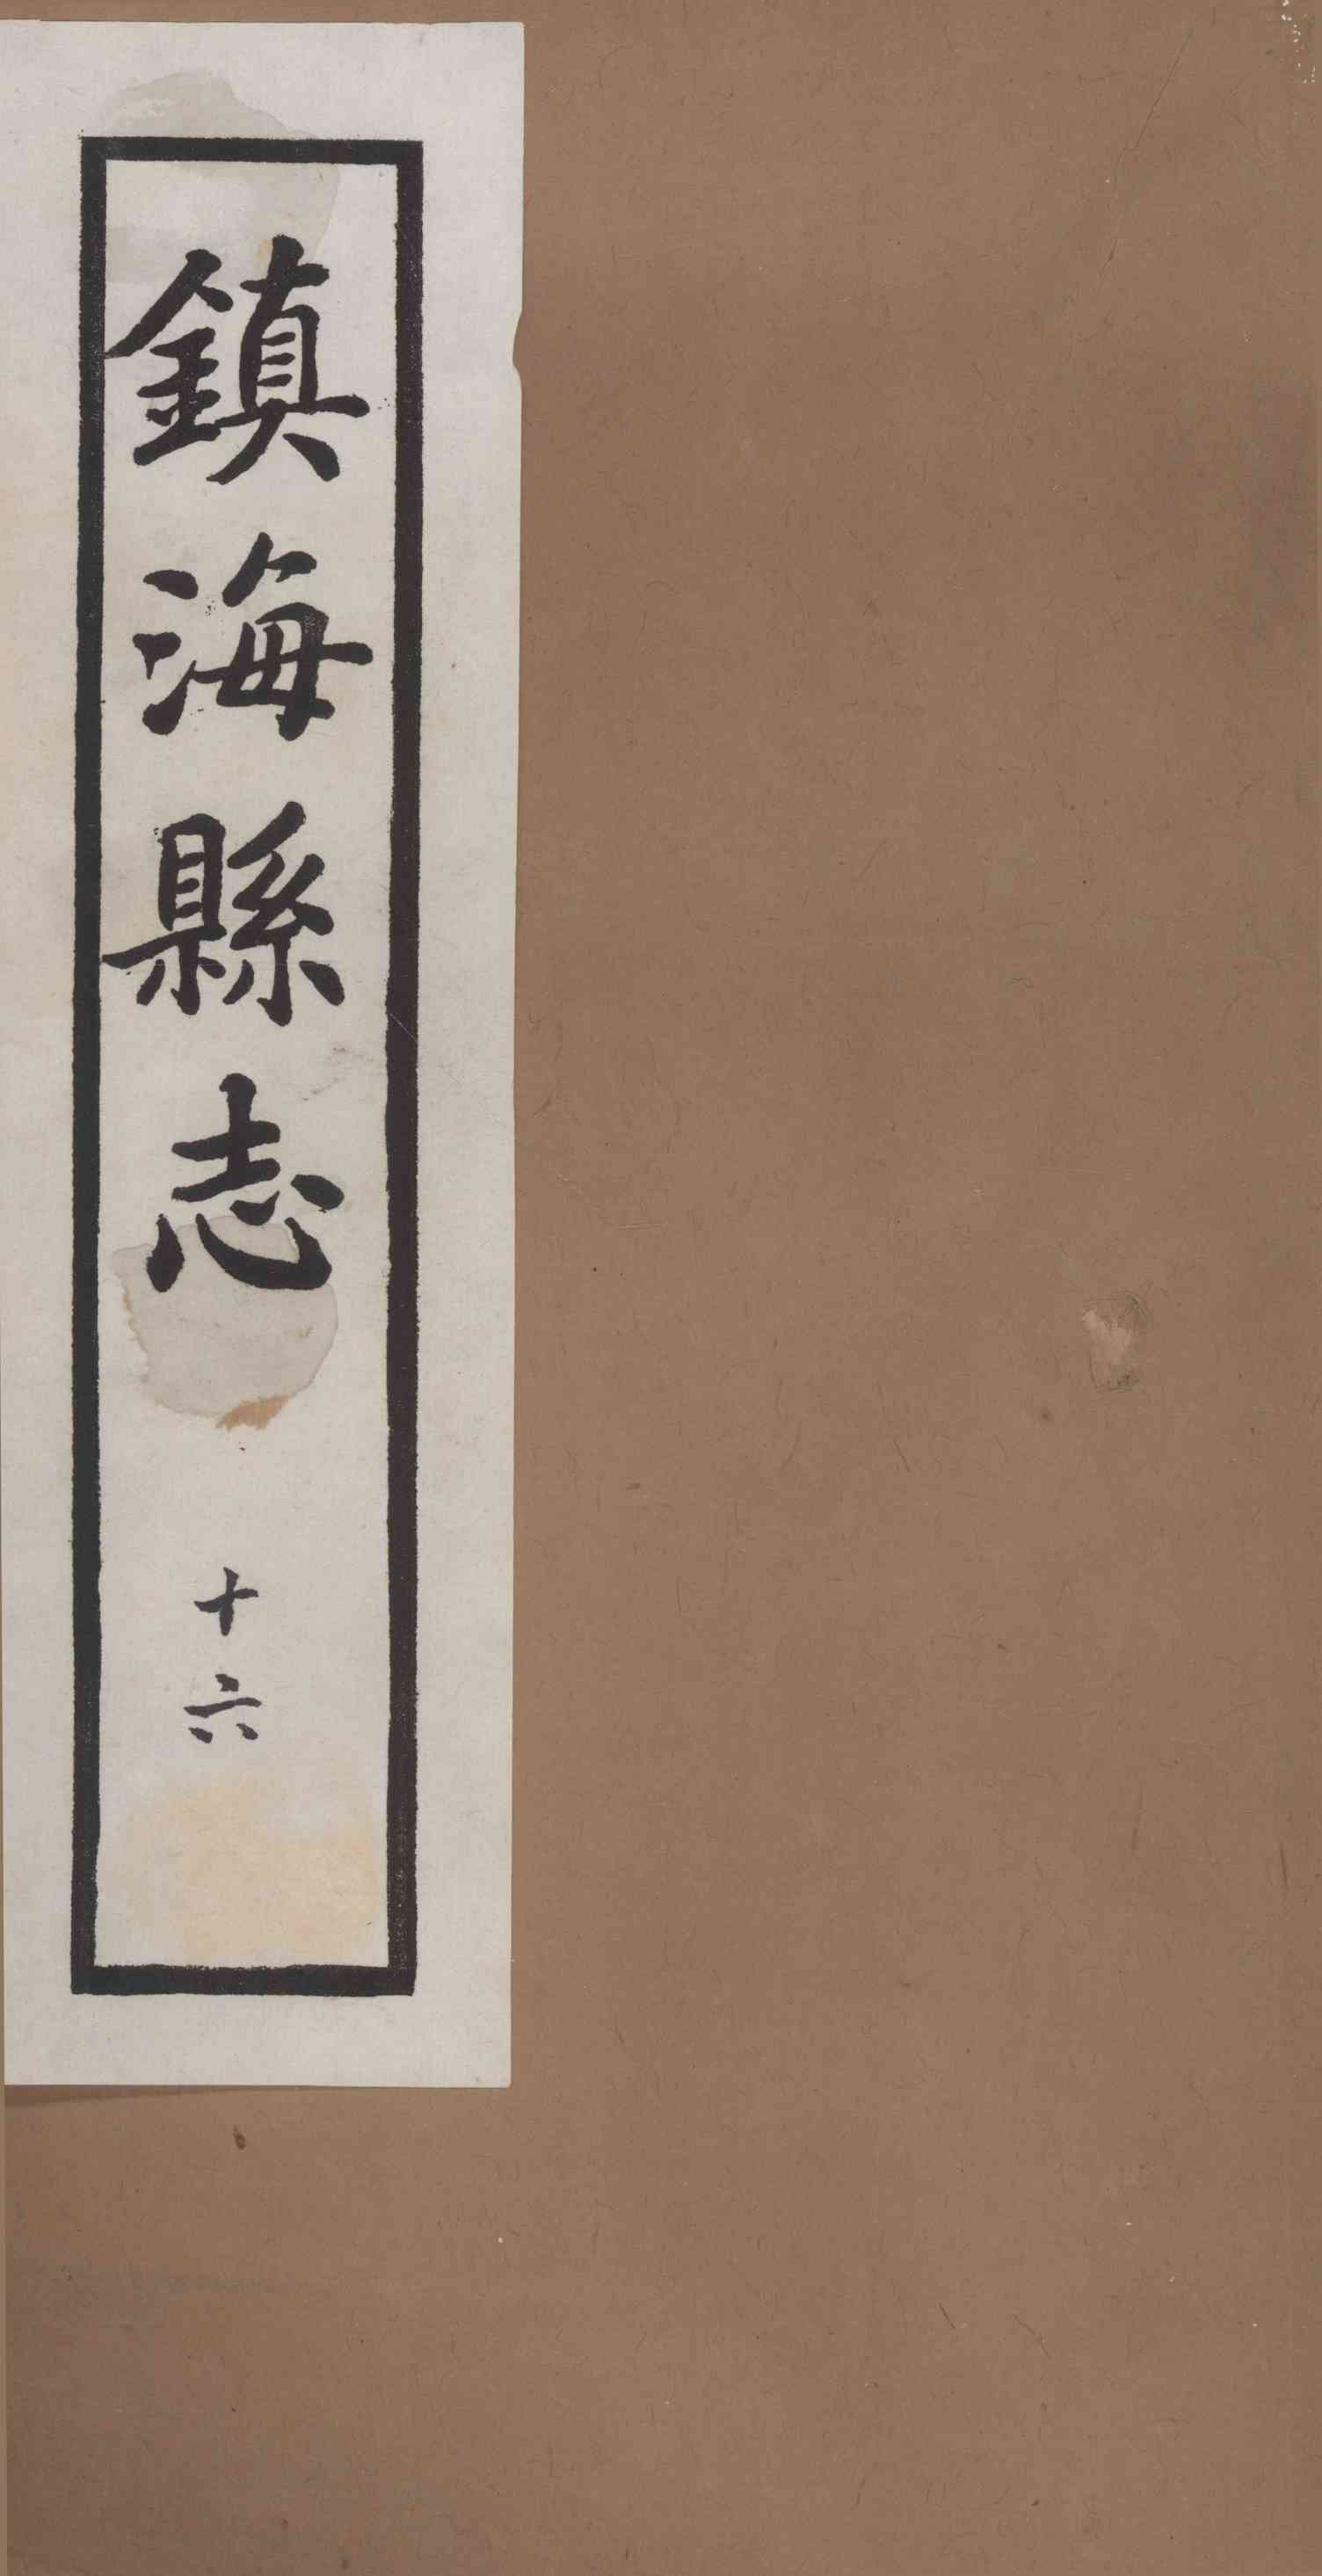 鎮海縣志
十六